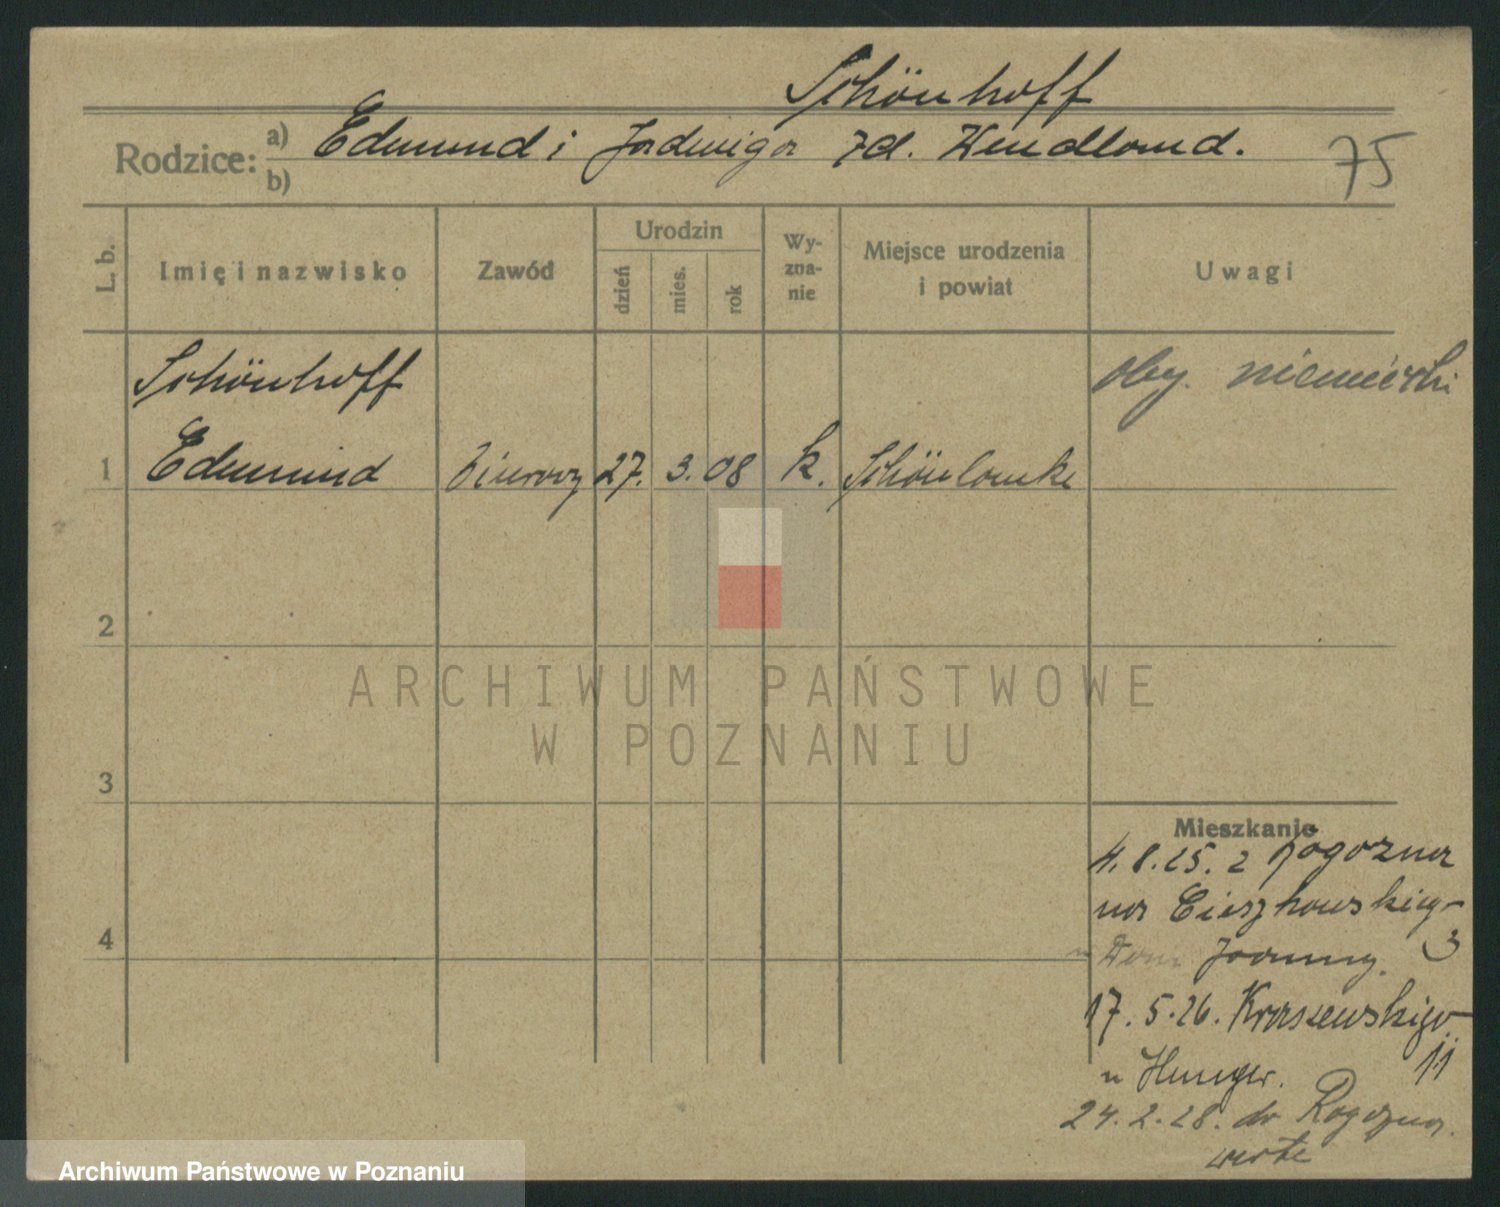 Schönhoff
Rodzice: a) Edmund i Jadwiga zd. Wendland.
b)
75
L. b.
Imię i nazwisko
Zawód
Urodzin
dzień
mies.
rok
Wy-
zna-
nie
Miejsce urodzenia
i powiat
Uwagi
Schönhoff
oby. niemiecki
1 Edmund 27. 3. 08 k. Schönlanke
2
ARCHIWUM PAŃSTWOWE
W POZNANIU
3
Mieszkanie
4.8.25. z Rogozna
na Cieszkowskieg-
3
4
Joanny.
17.5.26. Kraszewskigo
11
u Hunger.
24.2.28. do Rogozna.
Archiwum Państwowe w Poznaniu